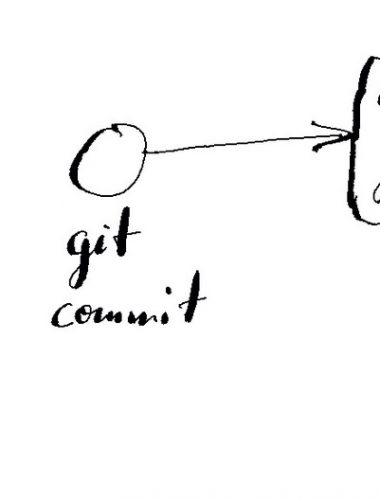 git
commit